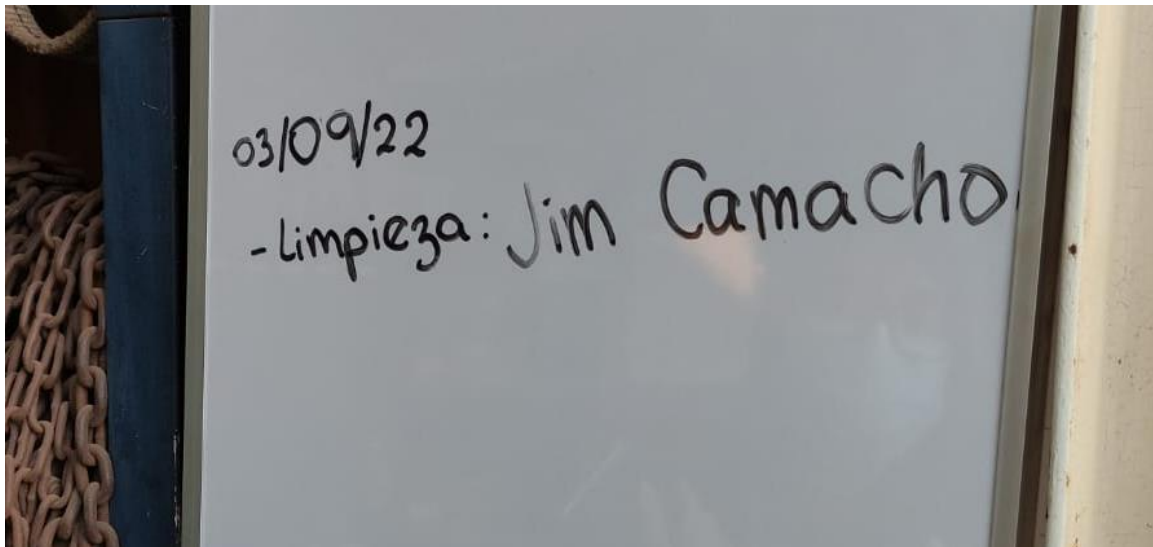 03/09/22
- Limpieza: Jim Camacho